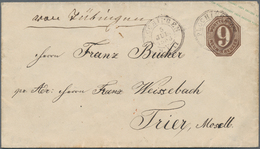 von Tübingen
9
Herrn Franz Bücker
pr. Adr: Herrn Franz Weissebach
Trier, Mosell.